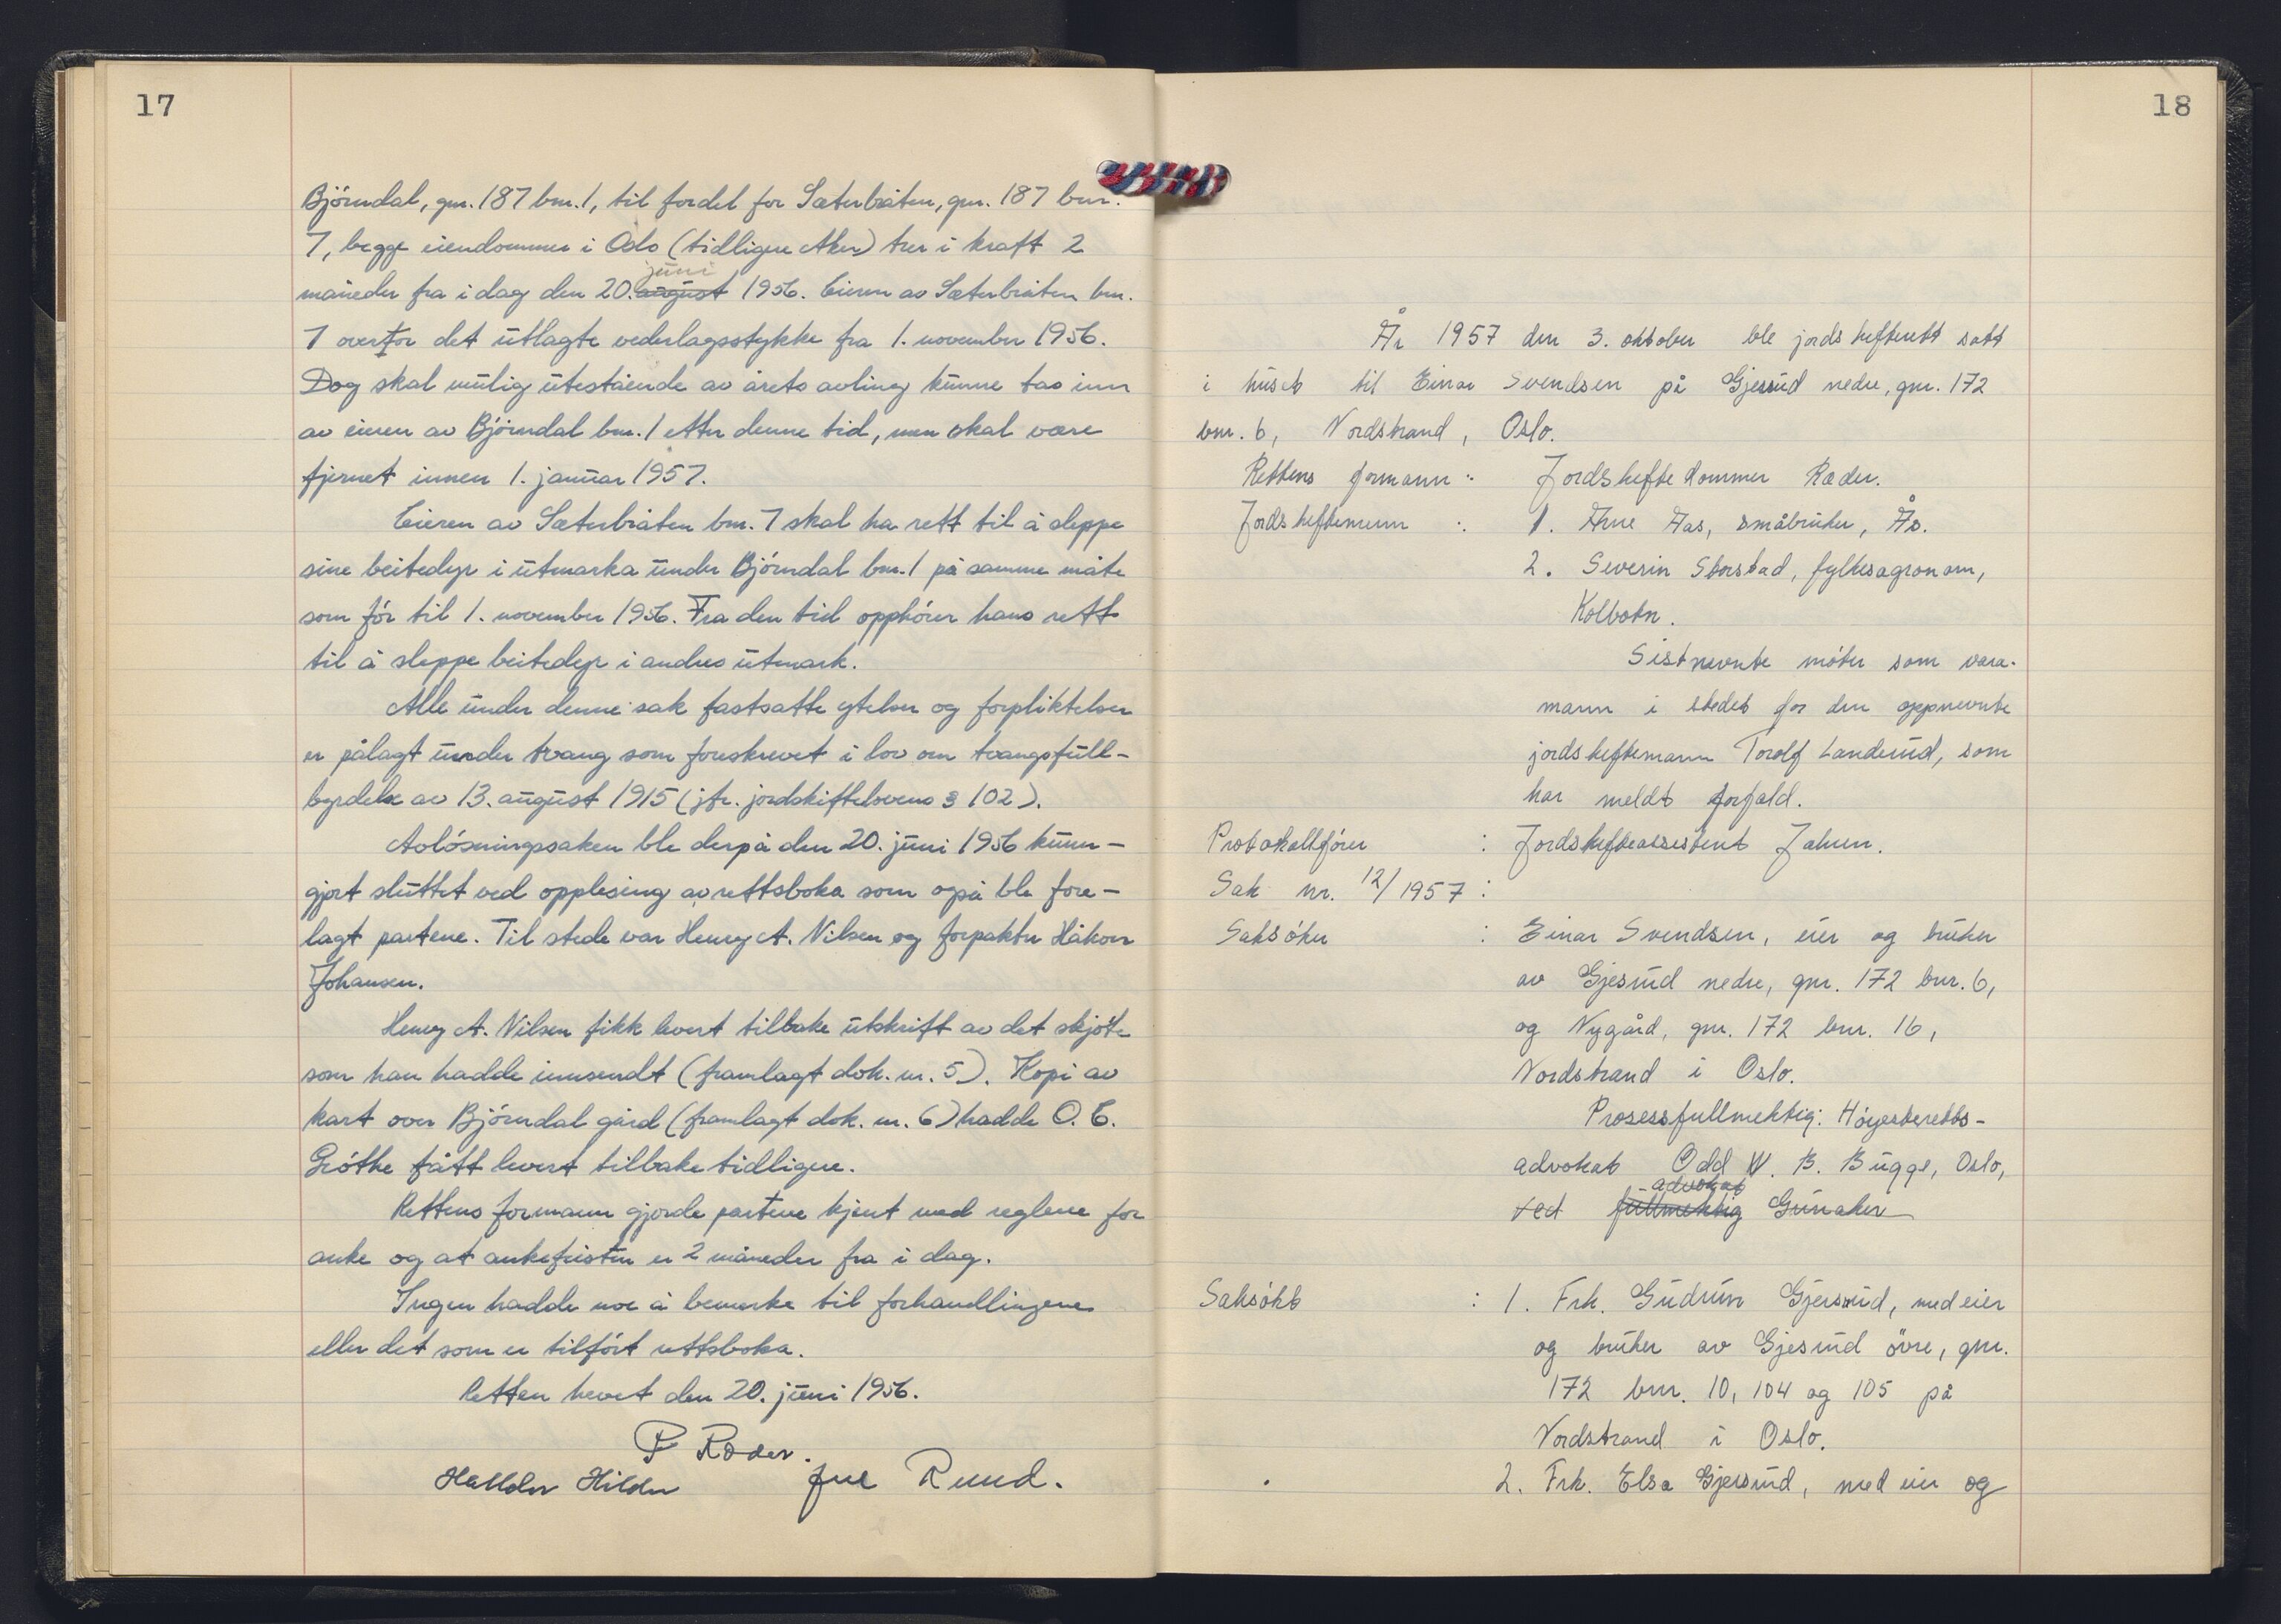 17
Bjørndal, gnr. 187 bnr. 1, til fordel for Sæterbråten, gnr. 187 bnr.
7, begge eiendommer i Oslo (tidligere Aker) trer i kraft 2
måneder fra i dag den 20. juni august 1956. Eieren av Sæterbråten bnr.
7 overtar det utlagte vederlagsstykke fra 1. november 1956.
Dog skal mulig utestående av årets avling kunne tas inn
av eieren av Bjørndal bnr. 1 etter denne tid, men skal være
fjernet innen 1. januar 1957.
Eieren av Sæterbråten bnr. 7 skal ha rett til å sleppe
sine beitedyr i utmarka under Bjørndal bnr. 1 på samme måte
som før til 1. november 1956. Fra den tid opphører hans rett
til å sleppe beitedyr i andres utmark.
Alle under denne sak fastsatte ytelser og forpliktelser
er pålagt under tvang som foreskrevet i lov om tvangsfull-
byrdelse av 13. august 1915 (jfr. jordskiftelovens § 102).
Avløsningssaken ble derpå den 20. juni 1956 kunn-
gjort sluttet ved opplesing av rettsboka som også ble fore-
lagt partene. Til stede var Henry A. Nilsen og forpakter Håkon
Johansen.
Henry A. Nilsen fikk levert tilbake utskrift av det skjøte
som han hadde innsendt (framlagt dok. nr. 5). Kopi av
kart over Bjørndal gård (framlagt dok. nr. 6) hadde O. E.
Grøthe fått levert tilbake tidligere.
Rettens formann gjorde partene kjent med reglene for
anke og at ankefristen er 2 måneder fra i dag.
Ingen hadde noe å bemerke til forhandlingene
eller det som er tilført rettsboka.
Retten hevet den 20. juni 1956.
P Ræder.
Halldor Hilder Jul Ruud.
18
År 1957 den 3. oktober ble jordskifterett satt
i huset til Einar Svendsen på Gjersrud nedre, gnr. 172
bnr. 6, Nordstrand, Oslo.
Rettens formann : Jordskiftedommer Ræder.
Jordskiftemenn : 1. Arne Aas, småbruker, Ås.
2. Severin Storstad, fylkesagronom,
Kolbotn.
Sistnevnte møter som vara-
mann i stedet for den oppnevnte
jordskiftemann Torolf Landerud, som
har meldt forfald.
Protokollfører : Jordskifteassistent Jahren.
Sak nr. 12/1957 :
Saksøker : Einar Svendsen, eier og bruker
av Gjesrud nedre, gnr. 172 bnr. 6,
og Nygård, gnr. 172 bnr. 16,
Nordstrand i Oslo.
Prosessfullmektig: Høyesteretts-
advokat Odd W. B. Bugge, Oslo,
advokat
ved fullmektig Gunaker
Saksøkt : 1. Frk. Gudrun Gjersrud, medeier
og bruker av Gjesrud övre, gnr.
172 bnr. 10, 104 og 105 på
Nordstrand i Oslo.
2. Frk. Elsa Gjersrud, medeier og